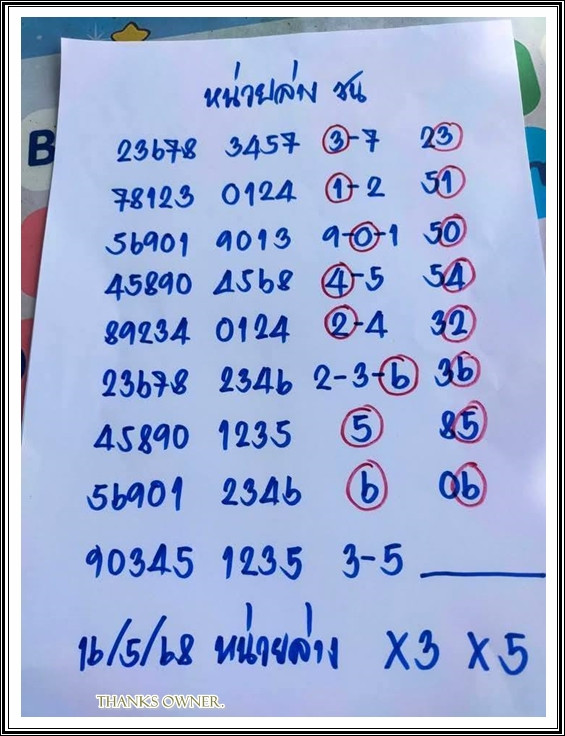 หน่วยล่าง ชน
23678 3457 3-7 23
78123 0124 1-2 51
56901 9013 9-0-1 50
45890 4568 4-5 54
89234 0124 2-4 32
23678 2346 2-3-6 36
45890 1235 5 85
56901 2346 6 06
90345 1235 3-5
16/5/68 หน่วยล่าง X3 X5
THANKS OWNER.